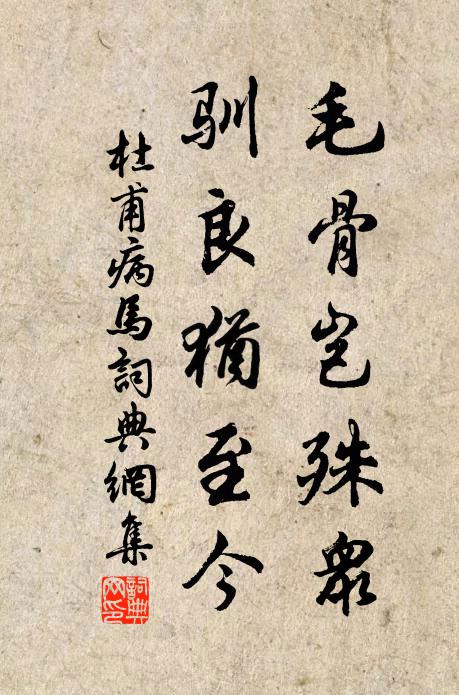 毛骨岂殊衆
驯良猶至今
杜甫病馬詞典網集
詞典網印